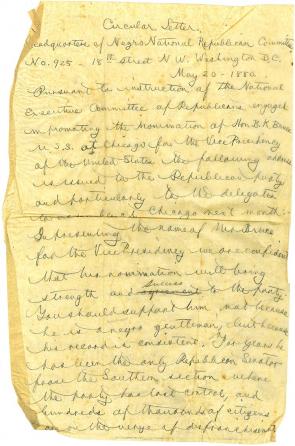 Circular letter.
Headquarters of Negro National Republican Committee
No. 925 - 18th street N.W. Washington D.C.
May 20 - 1880
Pursuant to instruction of the National
Executive Committee of Republicans engaged
in promoting the nomination of Hon B.K. Bruce
U.S.S. at Chicago for the Vice Presidency
of the United States the following address
is issued to the Republican party
and particularly to the delegates
Chicago next month:
In presenting the name of Mr Bruce
for the Vice Presidency we are confident
that his nomination will bring
success
strength and agreement to the party.
You should support him, not because
he is a negro gentleman, but because
his record is consistent. For years he
has been the only Republican Senator
from the Southern section where
the party has lost control, and
hundreds of thousands of citizens
are on the verge of disfranchisement